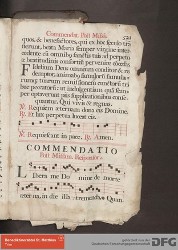 Commendat. Post Missas.
quos, & benefactores, qui ex hoc sæculo trans-
ierunt, beata Maria semper virgine inter-
cedente cū omnibus sanctis tuis ad perpetuæ
beatitudinis consortiū pervenire concedas.
Fidelium Deus omnium conditor & re-
demptor, animabus famulorū famula-
rumq; tuarum remissionem cunctorū tri-
bue peccatorū: ut indulgentiam, quā semp-
per optaverunt, piis supplicationibus conse-
quantur. Qui vivis & regnas.
℣. Requiem æternam dona eis Domine.
℣. Requiescant in pace. ℟. Amen.
COMMENDATIO
Post Missam. Responsor.
LIbera me Domine de morte
æterna, in die illa tremenda: Quan